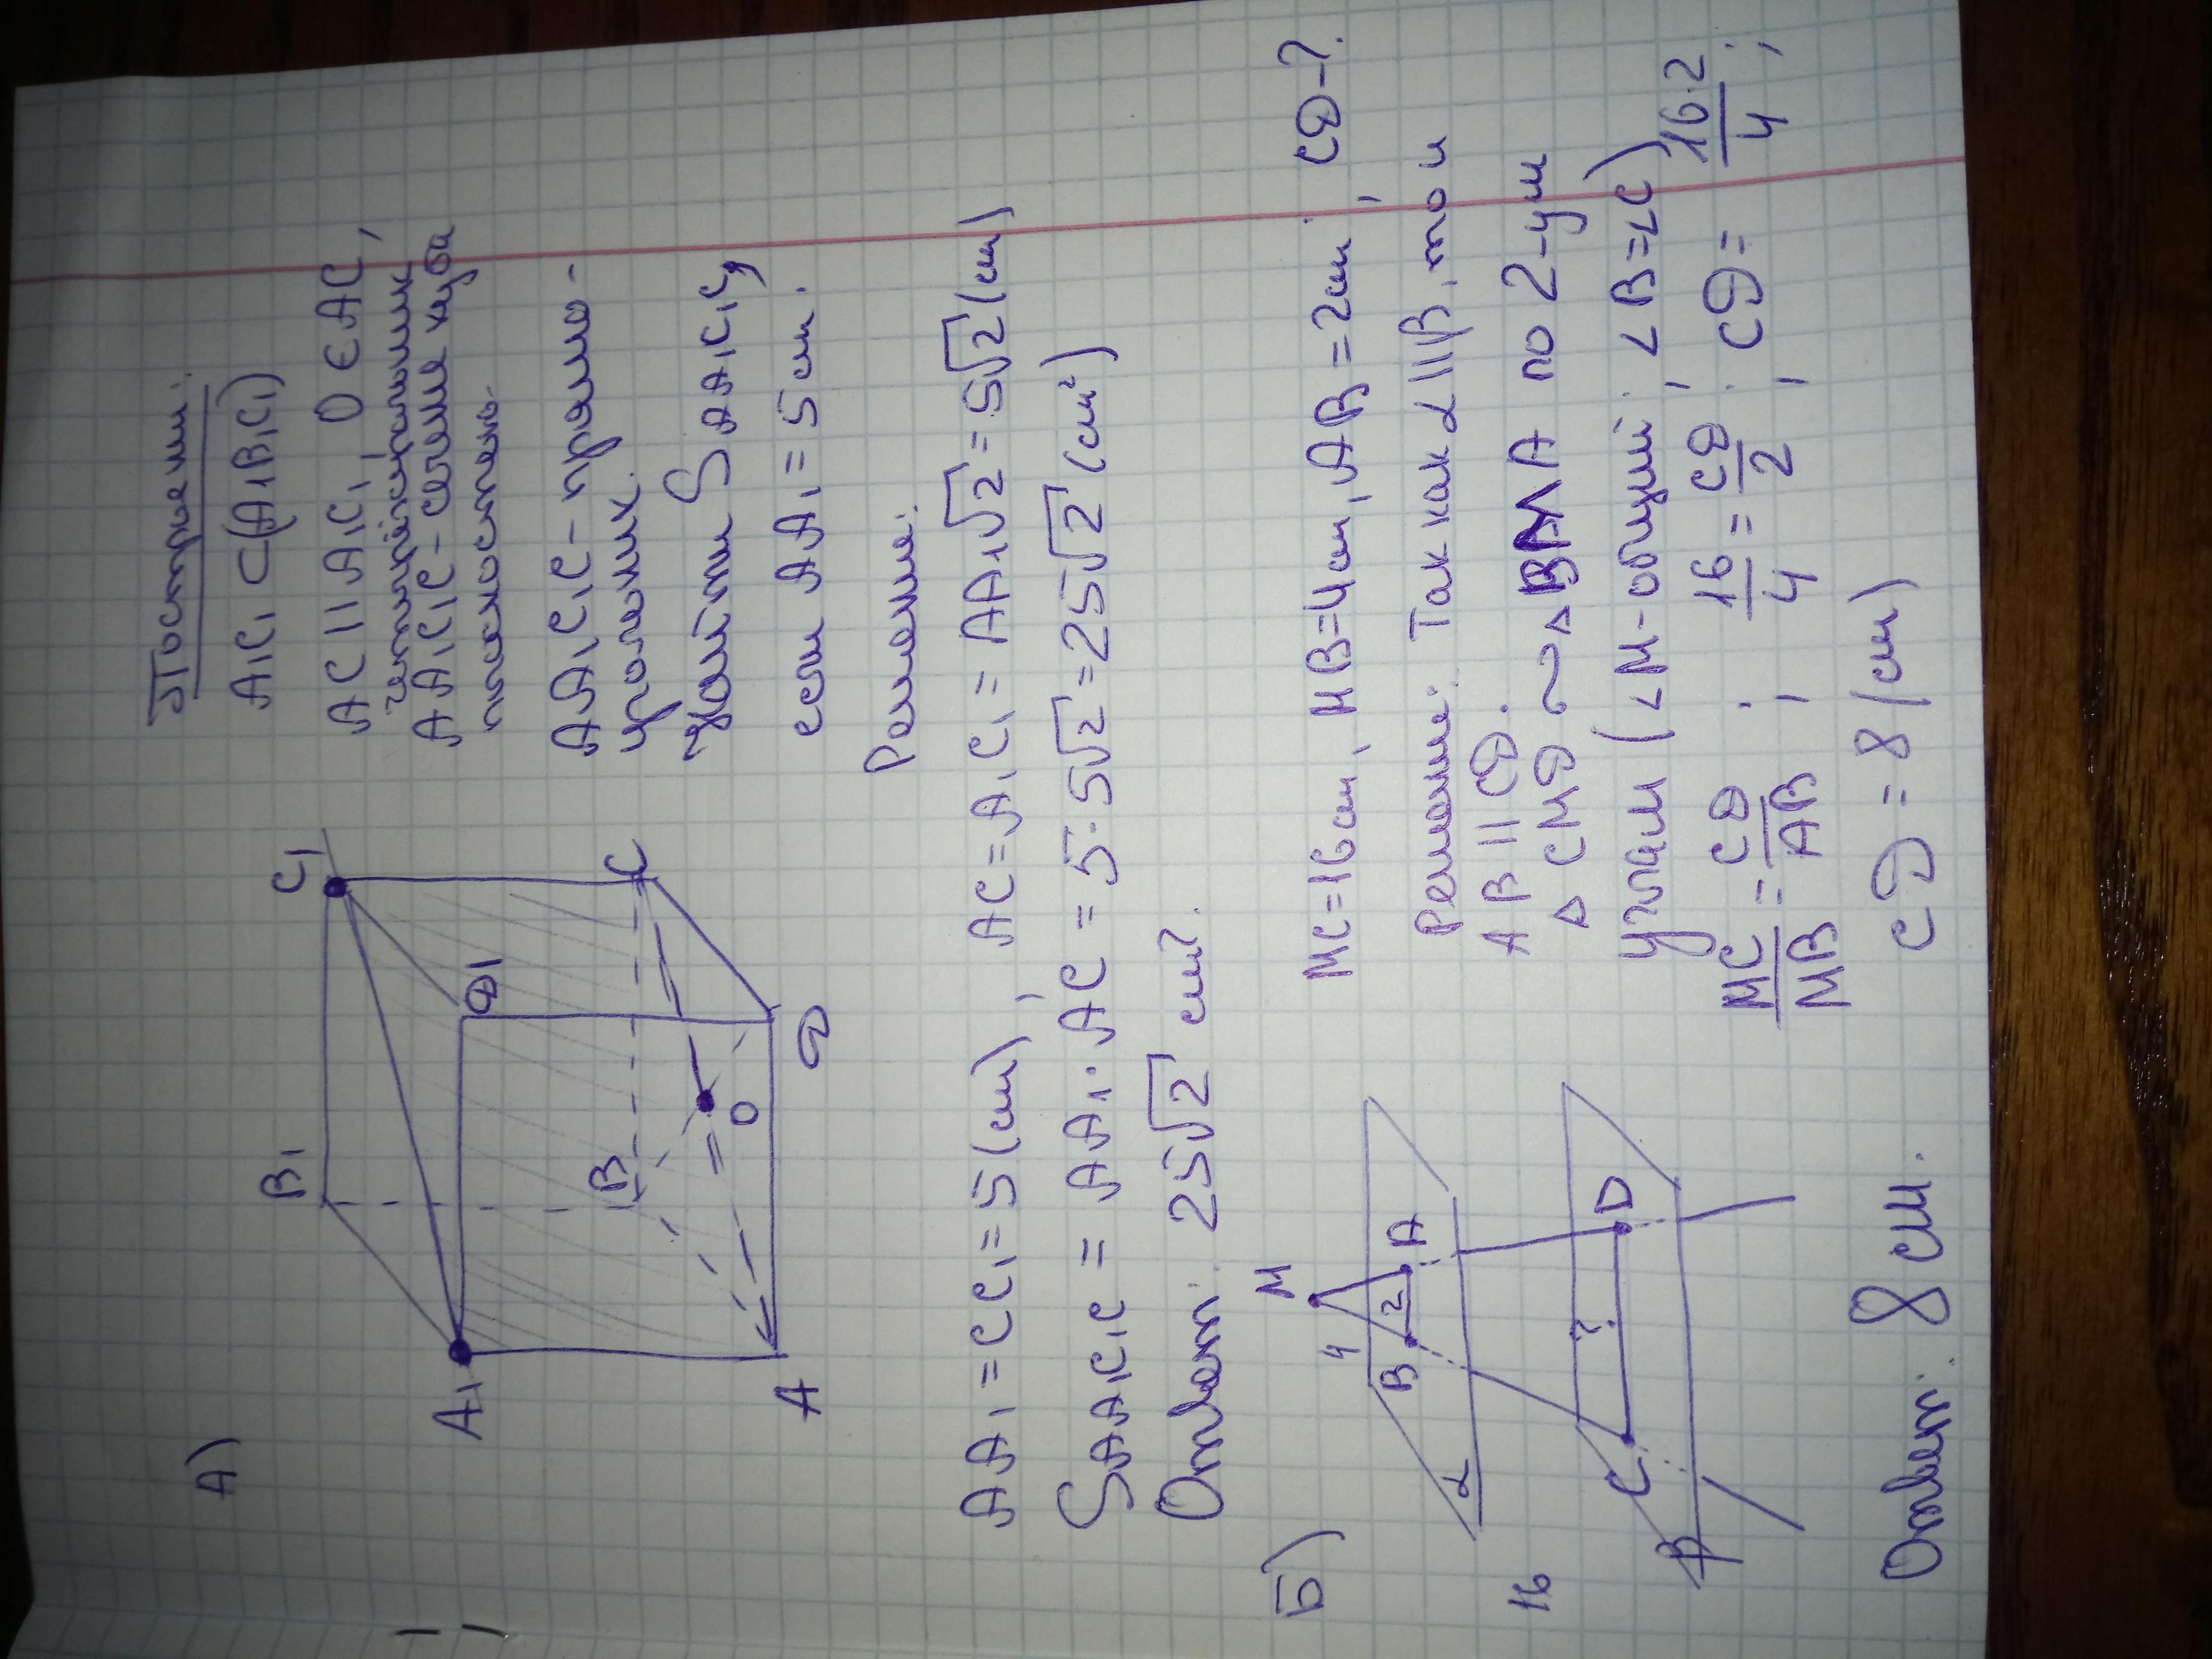 А)
B1
C1
A1
D1
B
C
O
A
D
Построени:
A1C1 ⊂ (A1B1C1)
AC || A1C1, O ∈ AC,
AA1C1C - сечение куба
плоскостью.
AA1C1C - прямо-
угольник.
Найти S AA1C1C,
если AA1 = 5 см.
Решение:
AA1 = CC1 = 5 (см), AC = A1C1 = AA1√2 = 5√2 (см)
SAA1C1C = AA1 · AC = 5 · 5√2 = 25√2 (см²)
Ответ: 25√2 см².
Б)
M
4
B
2
A
α
16
?
C
D
β
MC = 16 см, MB = 4 см, AB = 2 см, CD - ?
Решение: Так как α || β, то и
AB || CD.
△ CMD ~ △ BMA по 2-ум
углам (∠M - общий, ∠B = ∠C)
MC/MB = CD/AB ; 16/4 = CD/2 ; CD = 16·2/4 ;
CD = 8 (см)
Ответ: 8 см.